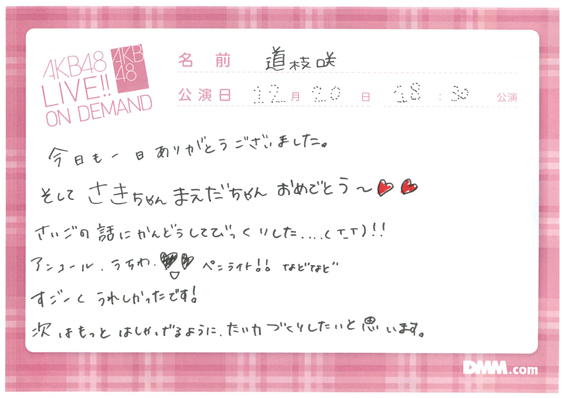 AKB48
LIVE!!
ON DEMAND
AKB
48
名前 道枝咲
公演日 12月20日 18:30 公演
今日も一日ありがとうございました。
そして さきちゃん まえだちゃん おめでとう〜
さいごの話にかんどうしてびっくりした....(T_T)!!
アンコール、うちわ、ペンライト!! などなど
すごーく うれしかったです!
次はもっと はしゃげるように、たい力づくりしたいと思います。
DMM.com